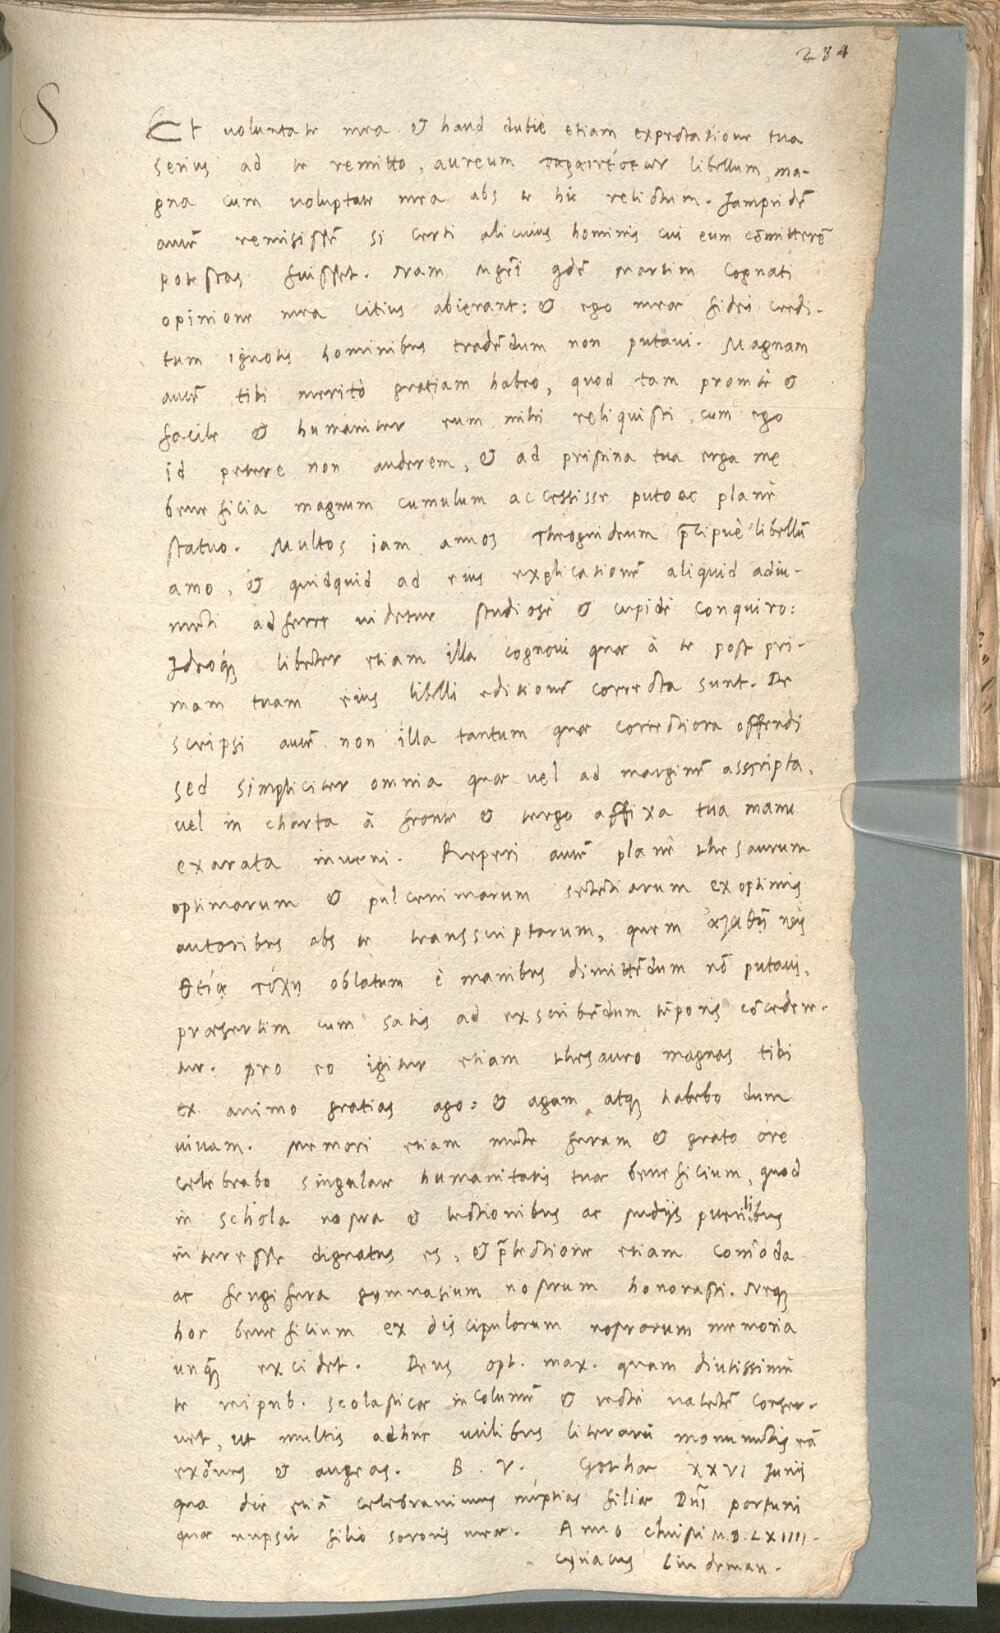 284
S
Et voluntate mea & haud dubiè etiam expectatione tua
serius ad te remitto, aureum libellum, ma-
gna cum voluptate mea abs te hic relictum. Jampridē
autē remisissē si certi alicuius hominis cui eum cōmitterē
potestas fuisset. Nam Martini cognati
opinione mea citius abierant: & ego meae fidei credi-
tum ignotis hominibus tradēdum non putavi. Magnam
autē tibi meritò gratiam habeo, quod tam promtè &
facile & humaniter eum mihi reliquisti, cum ego
id petere non auderem, & ad pristina tua erga me
beneficia magnum cumulum accessisse puto ac planè
statuo. Multos iam annos Theognideum p̄cipuè libellū
amo, & quidquid ad eius explicationē aliquid adiu-
mēti adferre videtur studiosè & cupidè conquiro:
Ideoq; libēter etiam illa cognovi quae à te post pri-
mam tuam eius libelli editionē correcta sunt. De
scripsi autē non illa tantum quae correctiora offendi
sed simpliciter omnia quae vel ad marginē asscripta,
vel in charta à fronte & tergo affixa tua manu
exarata inveni. Reperi autē planè thesaurum
optimorum & pulcerrimarum sētētiarum ex optimis
autoribus abs te transscriptarum, quem ἀγαθῇ
θείᾳ τύχῃ oblatum è manibus dimittēdum nō putavi,
praesertim cum satis ad exscribēdum tēporis cōcedere-
tur. pro eo igitur etiam thesauro magnas tibi
ex animo gratias ago: & agam atq; habebo dum
vivam. Memori etiam mēte feram & grato ore
celebrabo singulare humanitatis tuae beneficium, quod
in schola nostra & lectionibus ac studijs puerilibus
interesse dignatus es, & p̄lectione etiam com̄oda
ac frugifera gymnasium nostrum honorasti. Neq;
hoc beneficium ex discipulorum nostrorum memoria
unq̄; excidet. Deus opt. max. quam diutissimè
te reipub. scolasticae incolumē & rectè valētē conser-
vet, ut multis adhuc utilibus literarū monumētis eā
exōrnes & augeas. B. V. Gothae XXVI Junij
qua die etiā celebravimus nuptias filiae Dnī
quae nupsit filio sororis meae. Anno Christi M.D.LXIIII.
Cyriacus Lindeman.